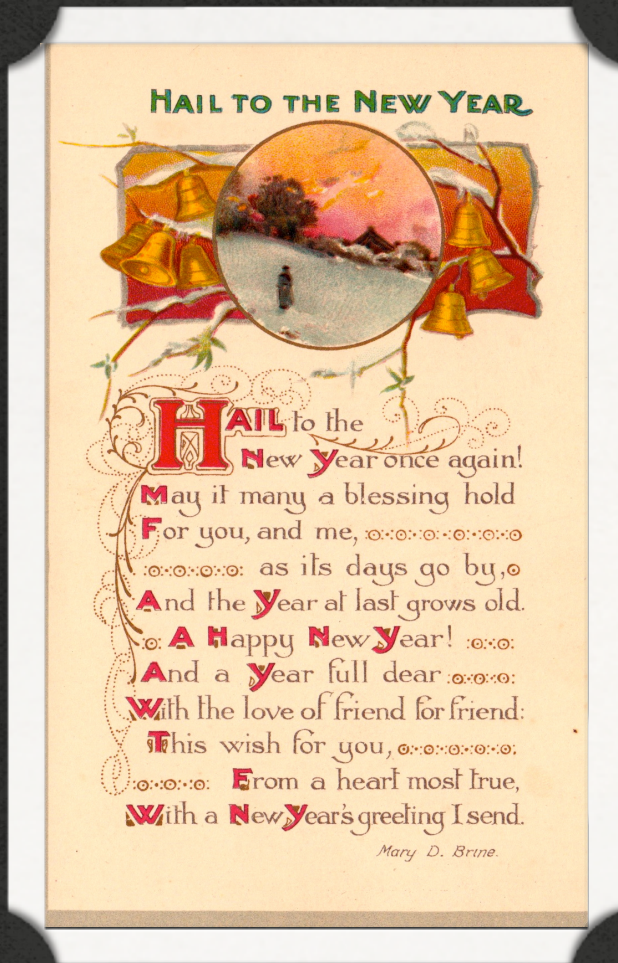 HAIL TO THE NEW YEAR
HAIL to the
New Year once again!
May it many a blessing hold
For you, and me,
as its days go by,
And the Year at last grows old.
A Happy New Year!
And a Year full dear
With the love of friend for friend:
This wish for you,
From a heart most true,
With a New Year's greeting I send.
Mary D. Brine.